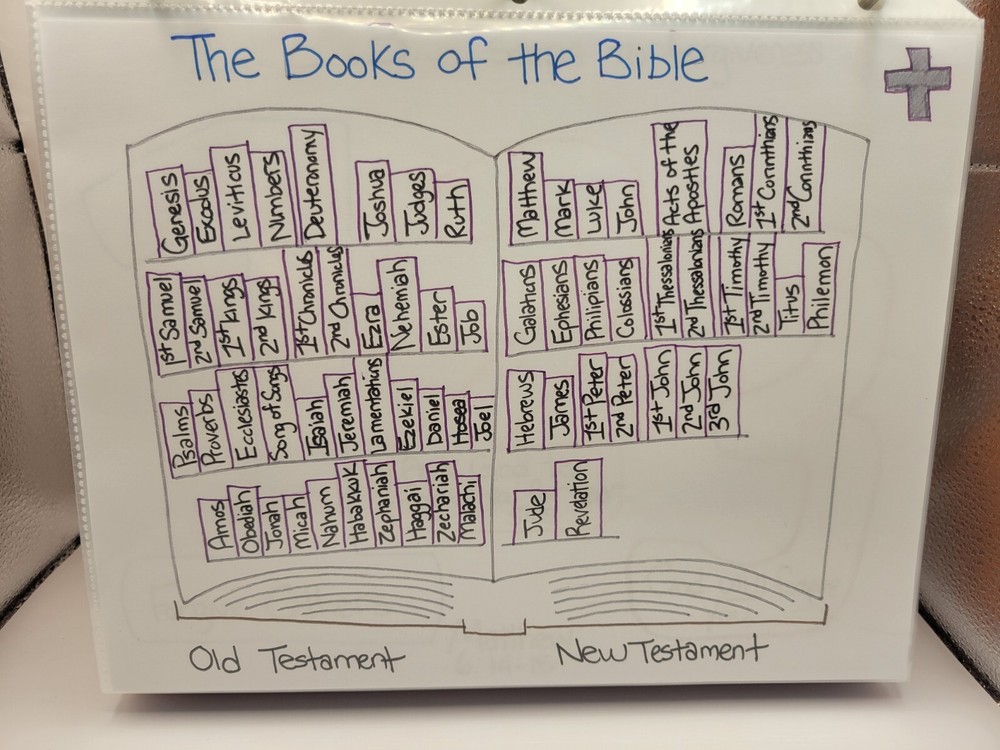 The Books of the Bible
Genesis
Exodus
Leviticus
Numbers
Deuteronomy
Joshua
Judges
Ruth
1st Samuel
2nd Samuel
1st Kings
2nd Kings
1st Chronicles
2nd Chronicles
Ezra
Nehemiah
Ester
Job
Psalms
Proverbs
Ecclesiastes
Song of Songs
Isaiah
Jeremiah
Lamentations
Ezekiel
Daniel
Hosea
Joel
Amos
Obadiah
Jonah
Micah
Nahum
Habakkuk
Zephaniah
Haggai
Zechariah
Malachi
Matthew
Mark
Luke
John
Acts of the
Apostles
Romans
1st Corinthians
2nd Corinthians
Galatians
Ephesians
Philipians
Colossians
1st Thessalonians
2nd Thessalonians
1st Timothy
2nd Timothy
Titus
Philemon
Hebrews
James
1st Peter
2nd Peter
1st John
2nd John
3rd John
Jude
Revelation
Old Testament
New Testament